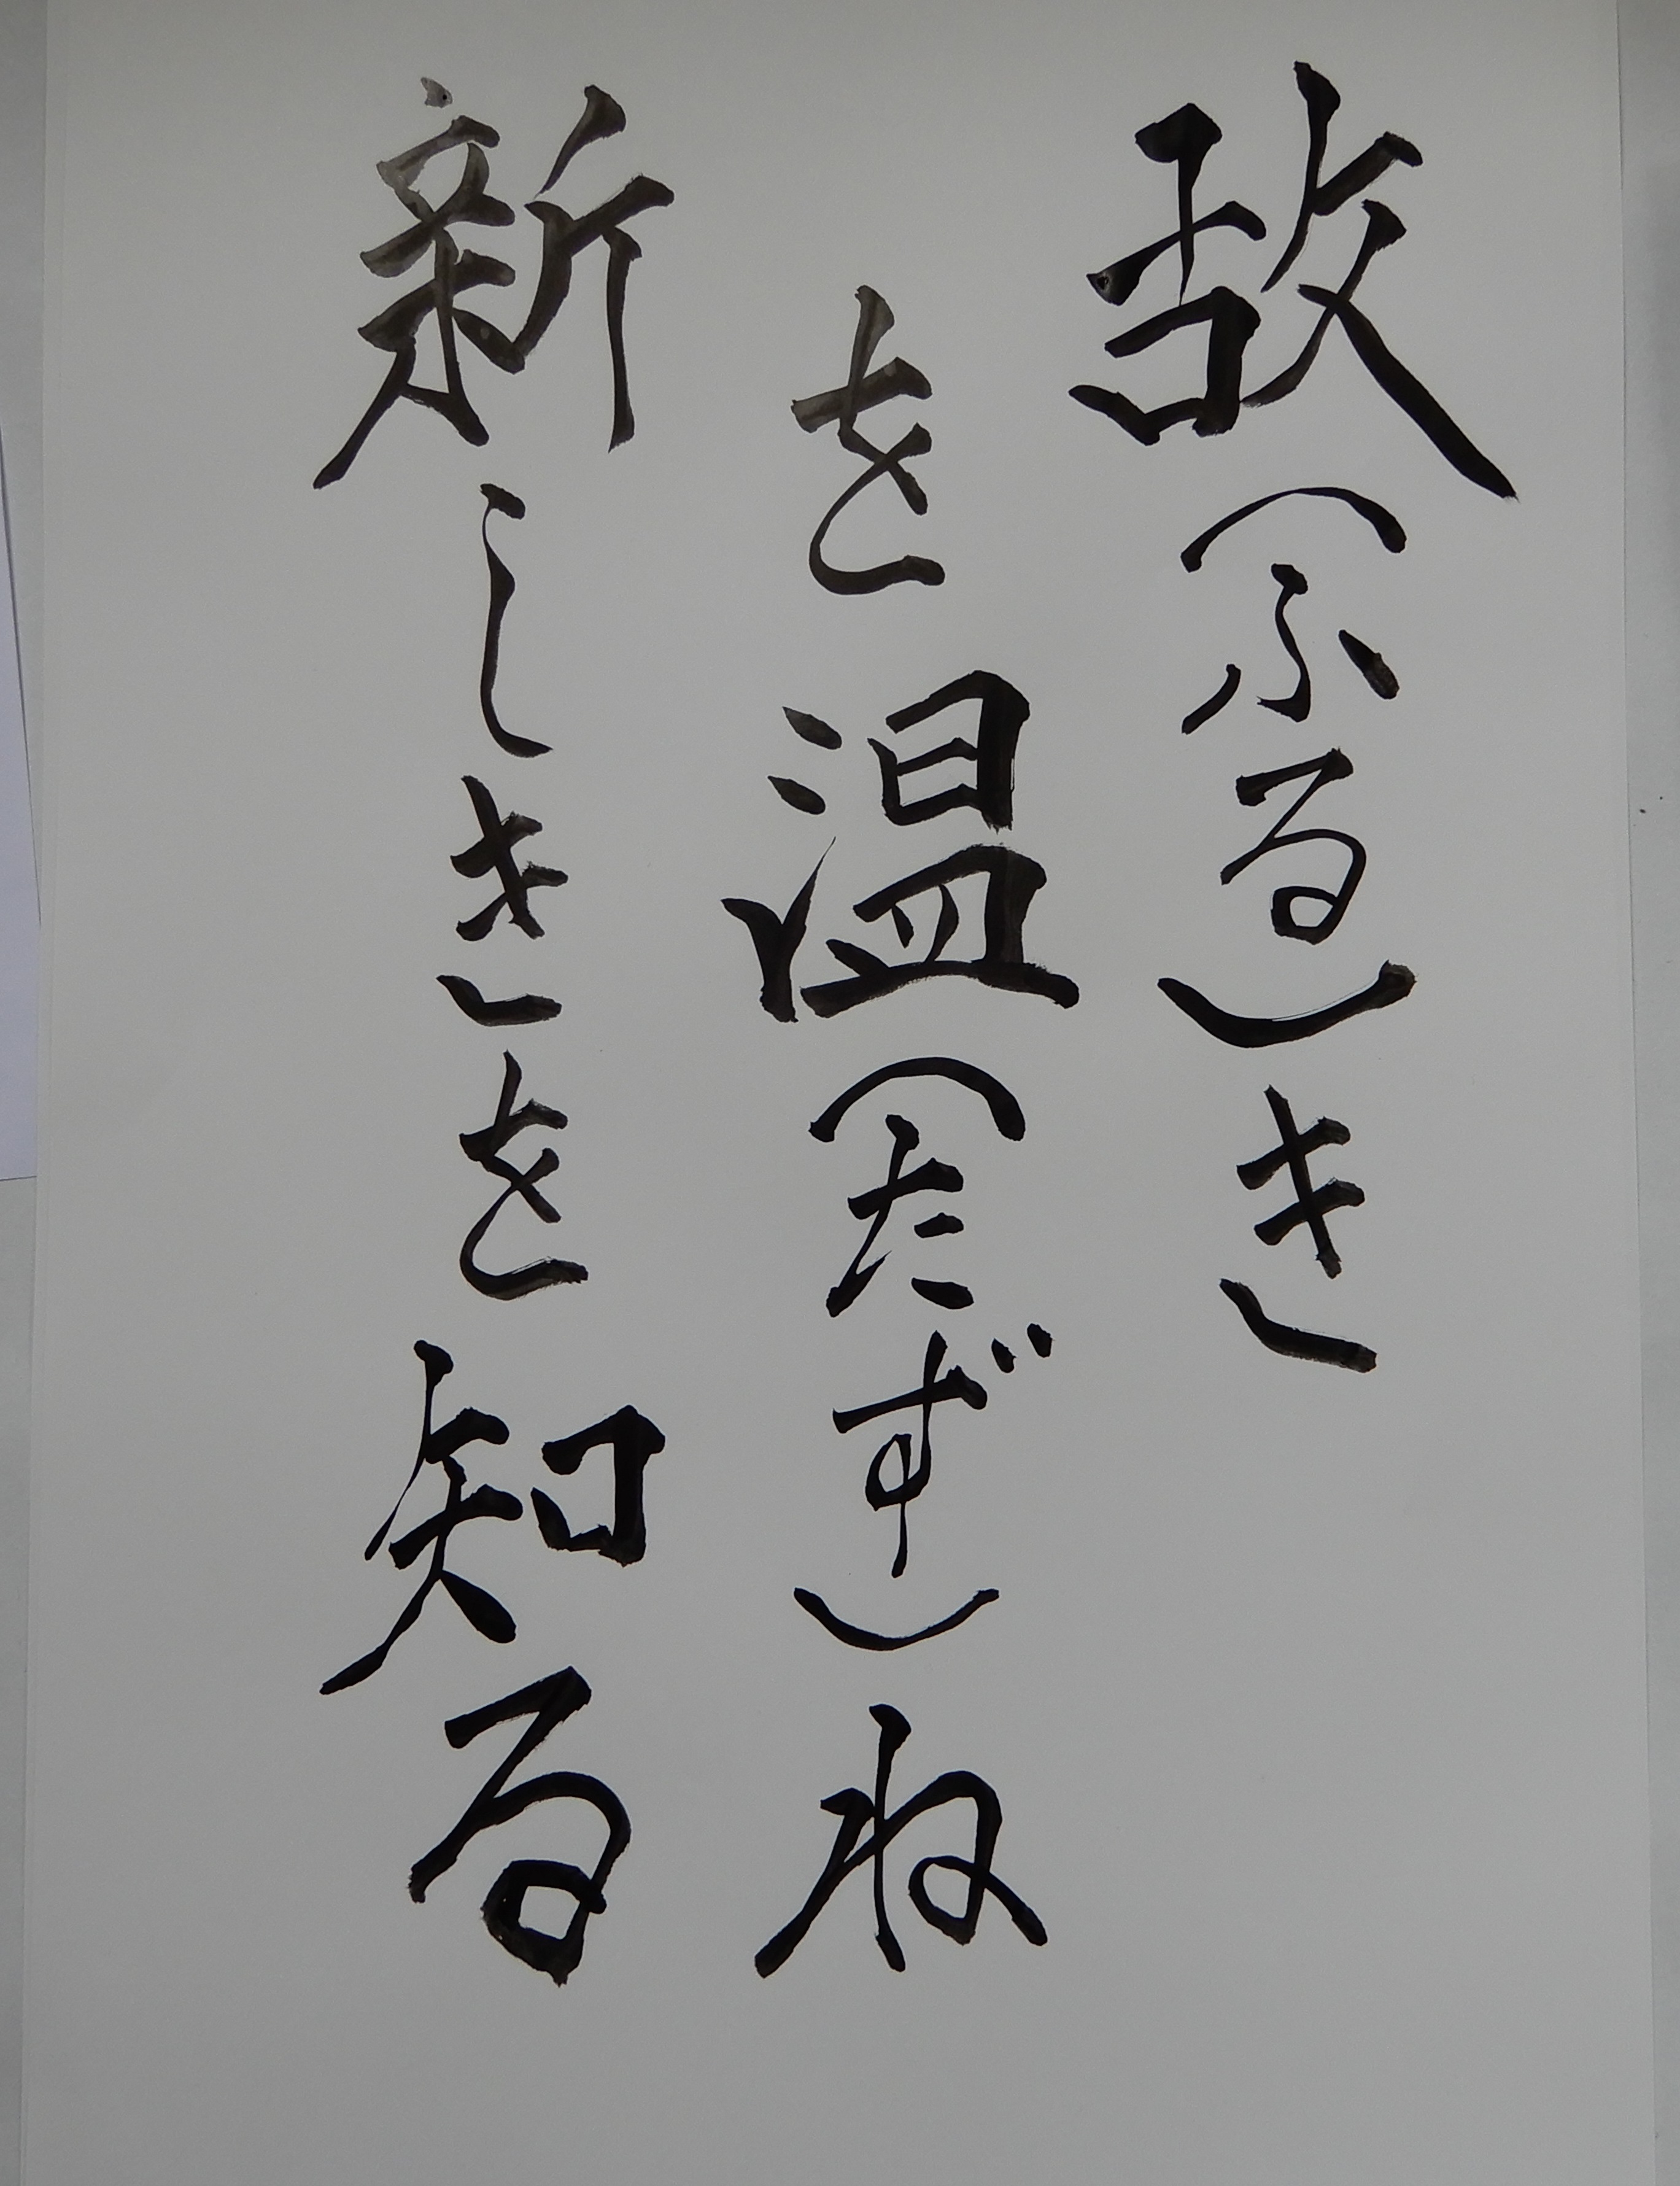 故（ふる）き
を温（たずず）ね
新しきを知る